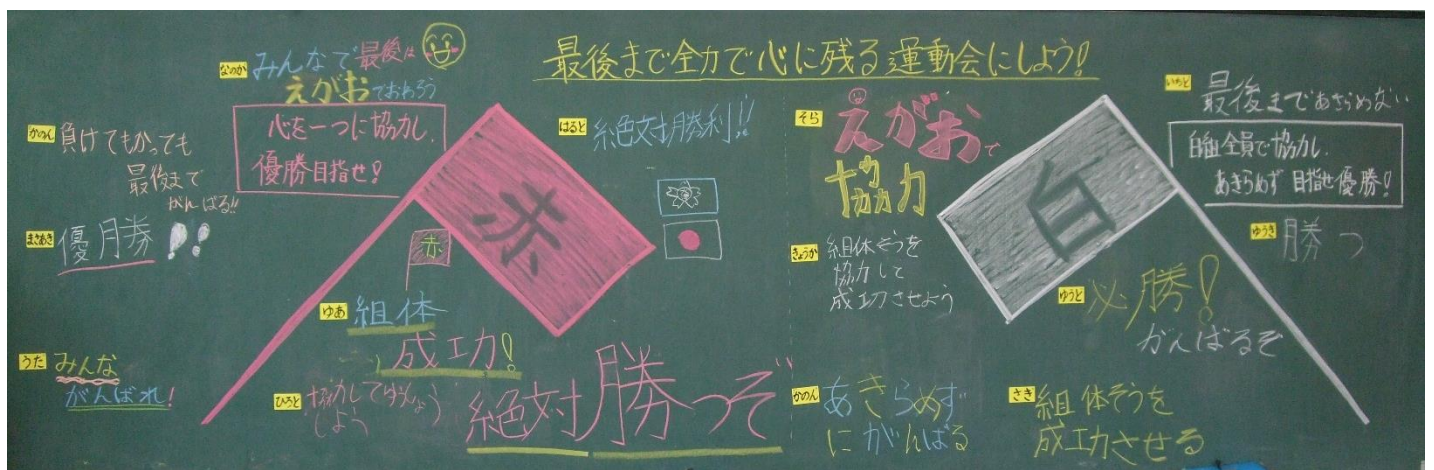 最後まで全力で心に残る運動会にしよう!
なのか
みんなで最後は
えがおでおわろう
心を一つに協力し、
優勝目指せ!
かのん
負けてもかっても
最後まで
がんばる!!
まさあき
優勝!!
うた
みんな
がんばれ!
赤
赤
ゆあ
組体
成功!
ひろと
協力して
しよう
絶対勝つぞ
はると
絶対勝利!!
そら
えがおで
協力
きょうか
組体そうを
協力して
成功させよう
かのん
あきらめず
にがんばる
白
いちと
最後まであきらめない
白組全員で協力し、
あきらめず目指せ優勝!
ゆうき
勝つ
ゆうと
必勝!
がんばるぞ
さき
組体そうを
成功させる